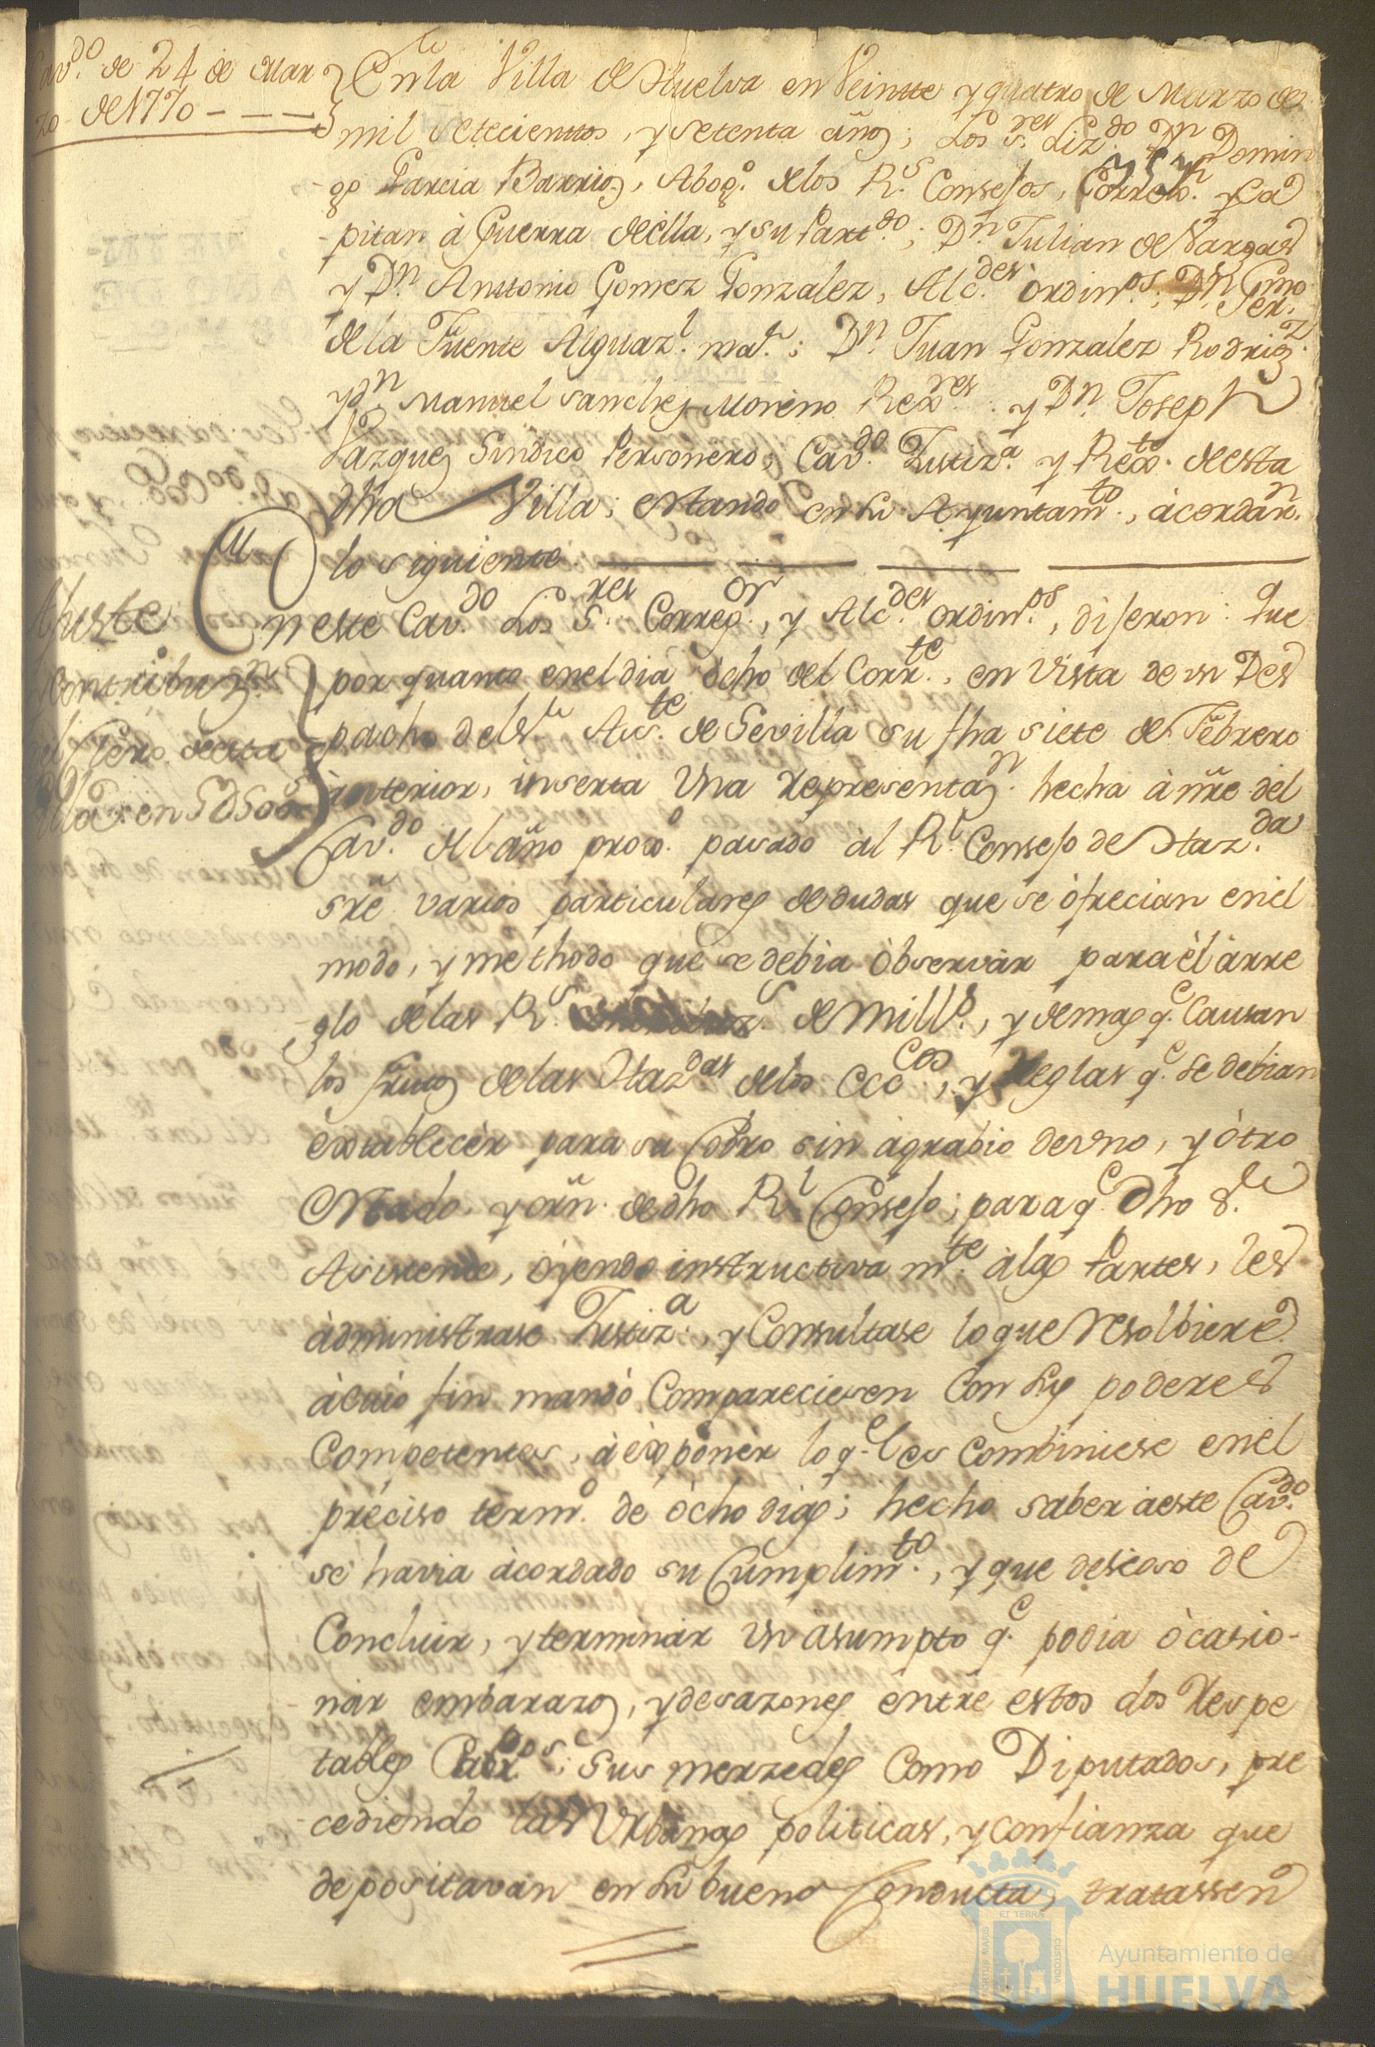 Cav.do de 24 de Mar
zo de 1770 - - - -
En la Villa de Huelva en Veintte y quatro de Marzo de
mil setecienttos, y setenta años; Los S.res Liz.do Dn Domin
go Garcia Barrios, Abog.o de los R.s Consejos, Correx.or y Ca
pitan à Guerra de èlla, y su Part.do; D.n Julian de Vargas
y D.n Anttonio Gomez Gonzalez, Alc.des òrdin.os; D.n Ger.mo
de la Fuente Alguaz.l ma.r; D.n Juan Gonzalez Rodrig.z
y d.n Manuel Sanchez Moreno Rex.res y D.n Joseph
Vazquez Sindico Personero, Cav.do Justiz.a y Rex.to de esta
dha Villa; estando en su Ayuntam.to, àcordar.n
lo siguiente
En este Cav.do Los S.res Correg.or, y Alc.des òrdin.os, dijeron: Que
por quanto en el dia òcho del Corr.te, en Vista de un Des
pacho del S.r Asis.te de Sevilla su fha siete de Febrero
ànterior, inserta Una Representaz.n hecha à nre del
Cav.do del año prox.o pasado al R.l Consejo de Haz.da
sre varios particulares de dudas que se òfrecian en el
modo, y methodo que se debia òbservàr para èl àrre
glo de las R.s de Mill.s, y demas q.e Causan
los frutos de las Haz.das de los Ecc.cos, y Reglas q.e se debian
establecèr para su Cobro sin àgrabio de uno, y òtro
estado, y orñ. de dho R.l Consejo; para q.e dho S.r
Asistente, òyendo instructiva m.te àlas Partes, les
àdministrase Justiz.a, y Consultase lo que resolbiere
à cuio fin mandò Compareciesen con sus poderes
Competentes, à èxponèr lo q.e les Combiniese en el
prèciso term.o de òcho dias; hecho saber à este Cav.do
sè havia àcordado su Cumplim.to, y que deseoso de
Concluir, y terminàr un asumpto q.e podia òcasio-
nàr embarazos, y desazones èntre estos dos Respe
tables sus merzedes como Diputados, pre
cediendo las Urbanas politicas, y confianza que
depositavan en su buena Conducta, tratassen
this te
Contribuz.n
del Clero de esta
Villa en
Ayuntamiento de
HUELVA